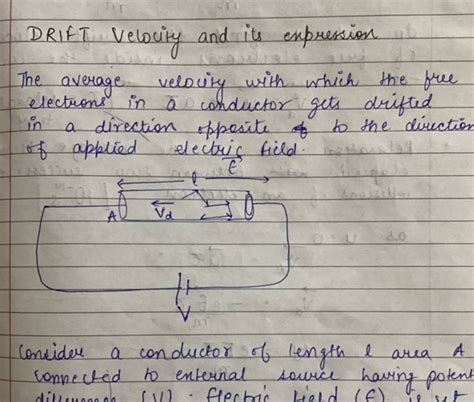 DRIFT Velocity and its expression
The average velocity with which the free
electrons in a conductor gets drifted
in a direction opposite to the direction
of applied electric field.
E
l
A
Vd
V
Consider a conductor of length l area A
connected to external source having poten
difference (V). Electric field (E) is set